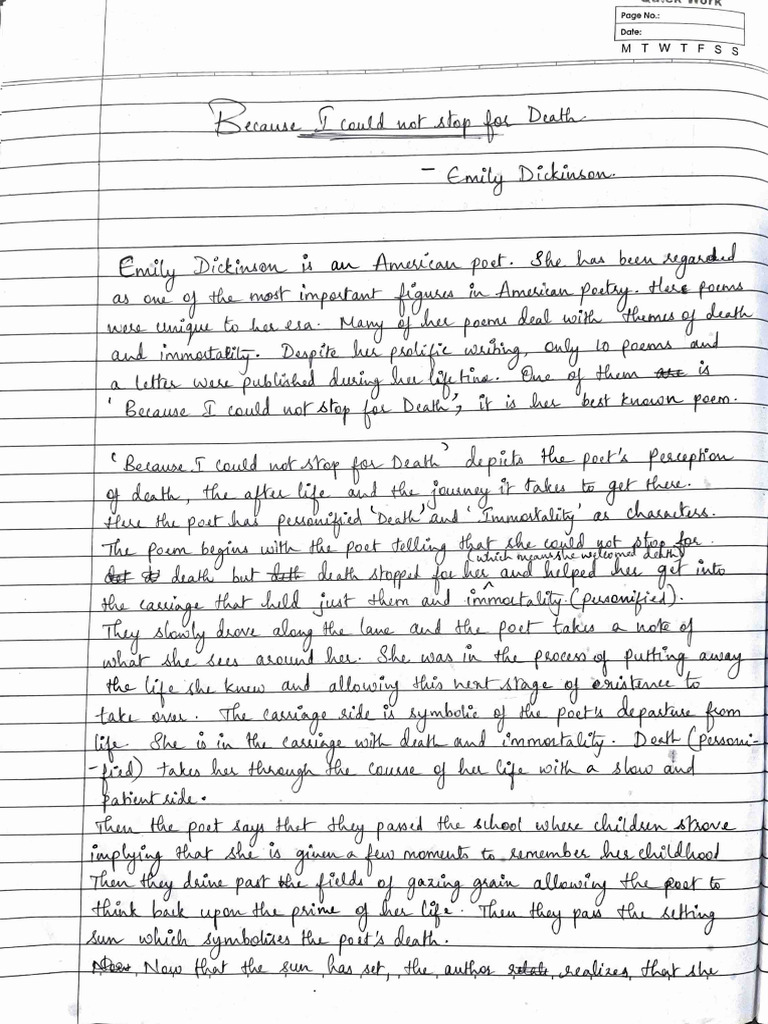 Quick Work
Page No.:
Date:
M T W T F S S
Because I could not stop for Death
- Emily Dickinson.
Emily Dickinson is an American poet. She has been regarded
as one of the most important figures in American poetry. Here poems
were unique to her era. Many of her poems deal with themes of death
and immortality. Despite her prolific writing, only 10 poems and
a letter were published during her lifetime. One of them are is
'Because I could not stop for Death', it is her best known poem.
'Because I could not stop for Death' depicts the poet's perception
of death, the after life and the journey it takes to get there.
Here the poet has personified 'Death' and 'Immortality' as characters.
The poem begins with the poet telling that she could not stop for
(which means she welcomed death)
death but death stopped for her and helped her get into
the carriage that held just them and immortality (personified).
They slowly drove along the lane and the poet takes a note of
what she sees around her. She was in the process of putting away
the life she knew and allowing this next stage of existence to
take over. The carriage ride is symbolic of the poet's departure from
life. She is in the carriage with death and immortality. Death (personi-
-fied) takes her through the course of her life with a slow and
patient ride.
Then the poet says that they passed the school where children strove
implying that she is given a few moments to remember her childhood
Then they drive past the fields of gazing grain allowing the poet to
think back upon the prime of her life. Then they pass the setting
sun which symbolises the poet's death.
Now that the sun has set, the author realizes that she